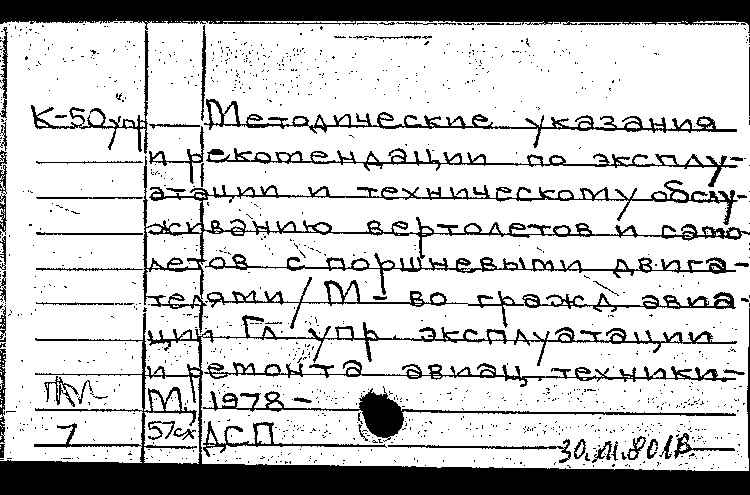 К-50упр. Методические указания
и рекомендации по эксплу-
атации и техническому обслу-
живанию вертолетов и само-
летов с поршневыми двига-
телями / М-во гражд. авиа-
ции Гл. упр. эксплуатации
и ремонта авиац. техники.-
М., 1978 -
7 57сх ДСП